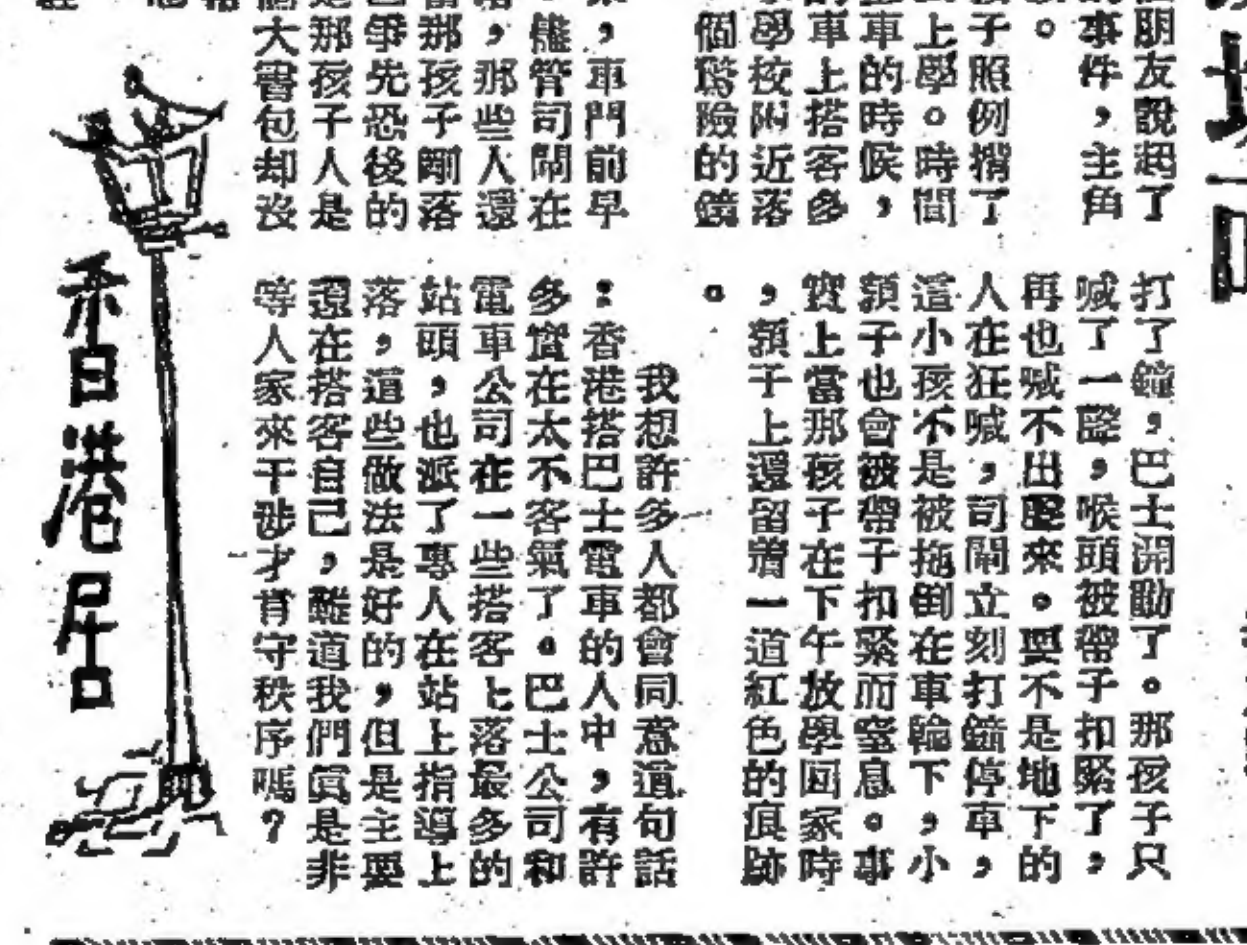 朋友說起了
事件，主角
。
子照例揹了
上學。時間
車的時候，
車上搭客多
學校附近落
個驚險的鏡
，車門前早
儘管司閘在
，那些人還
那孩子剛落
爭先恐後的
那孩子人是
大書包却沒
打了鐘，巴士開動了。那孩子只
喊了一聲，喉頭被帶子扣緊了，
再也喊不出聲來。要不是地下的
人在狂喊，司閘立刻打鐘停車，
這小孩不是被拖倒在車輪下，小
頸子也會被帶子扣緊而窒息。事
實上當那孩子在下午放學回家時
，頸子上還留着一道紅色的痕跡
。
我想許多人都會同意這句話
：香港搭巴士電車的人中，有許
多實在太不客氣了。巴士公司和
電車公司在一些搭客上落最多的
站頭，也派了專人在站上指導上
落，這些做法是好的，但是主要
還在搭客自己，難道我們眞是非
等人家來干涉才肯守秩序嗎？
香港居